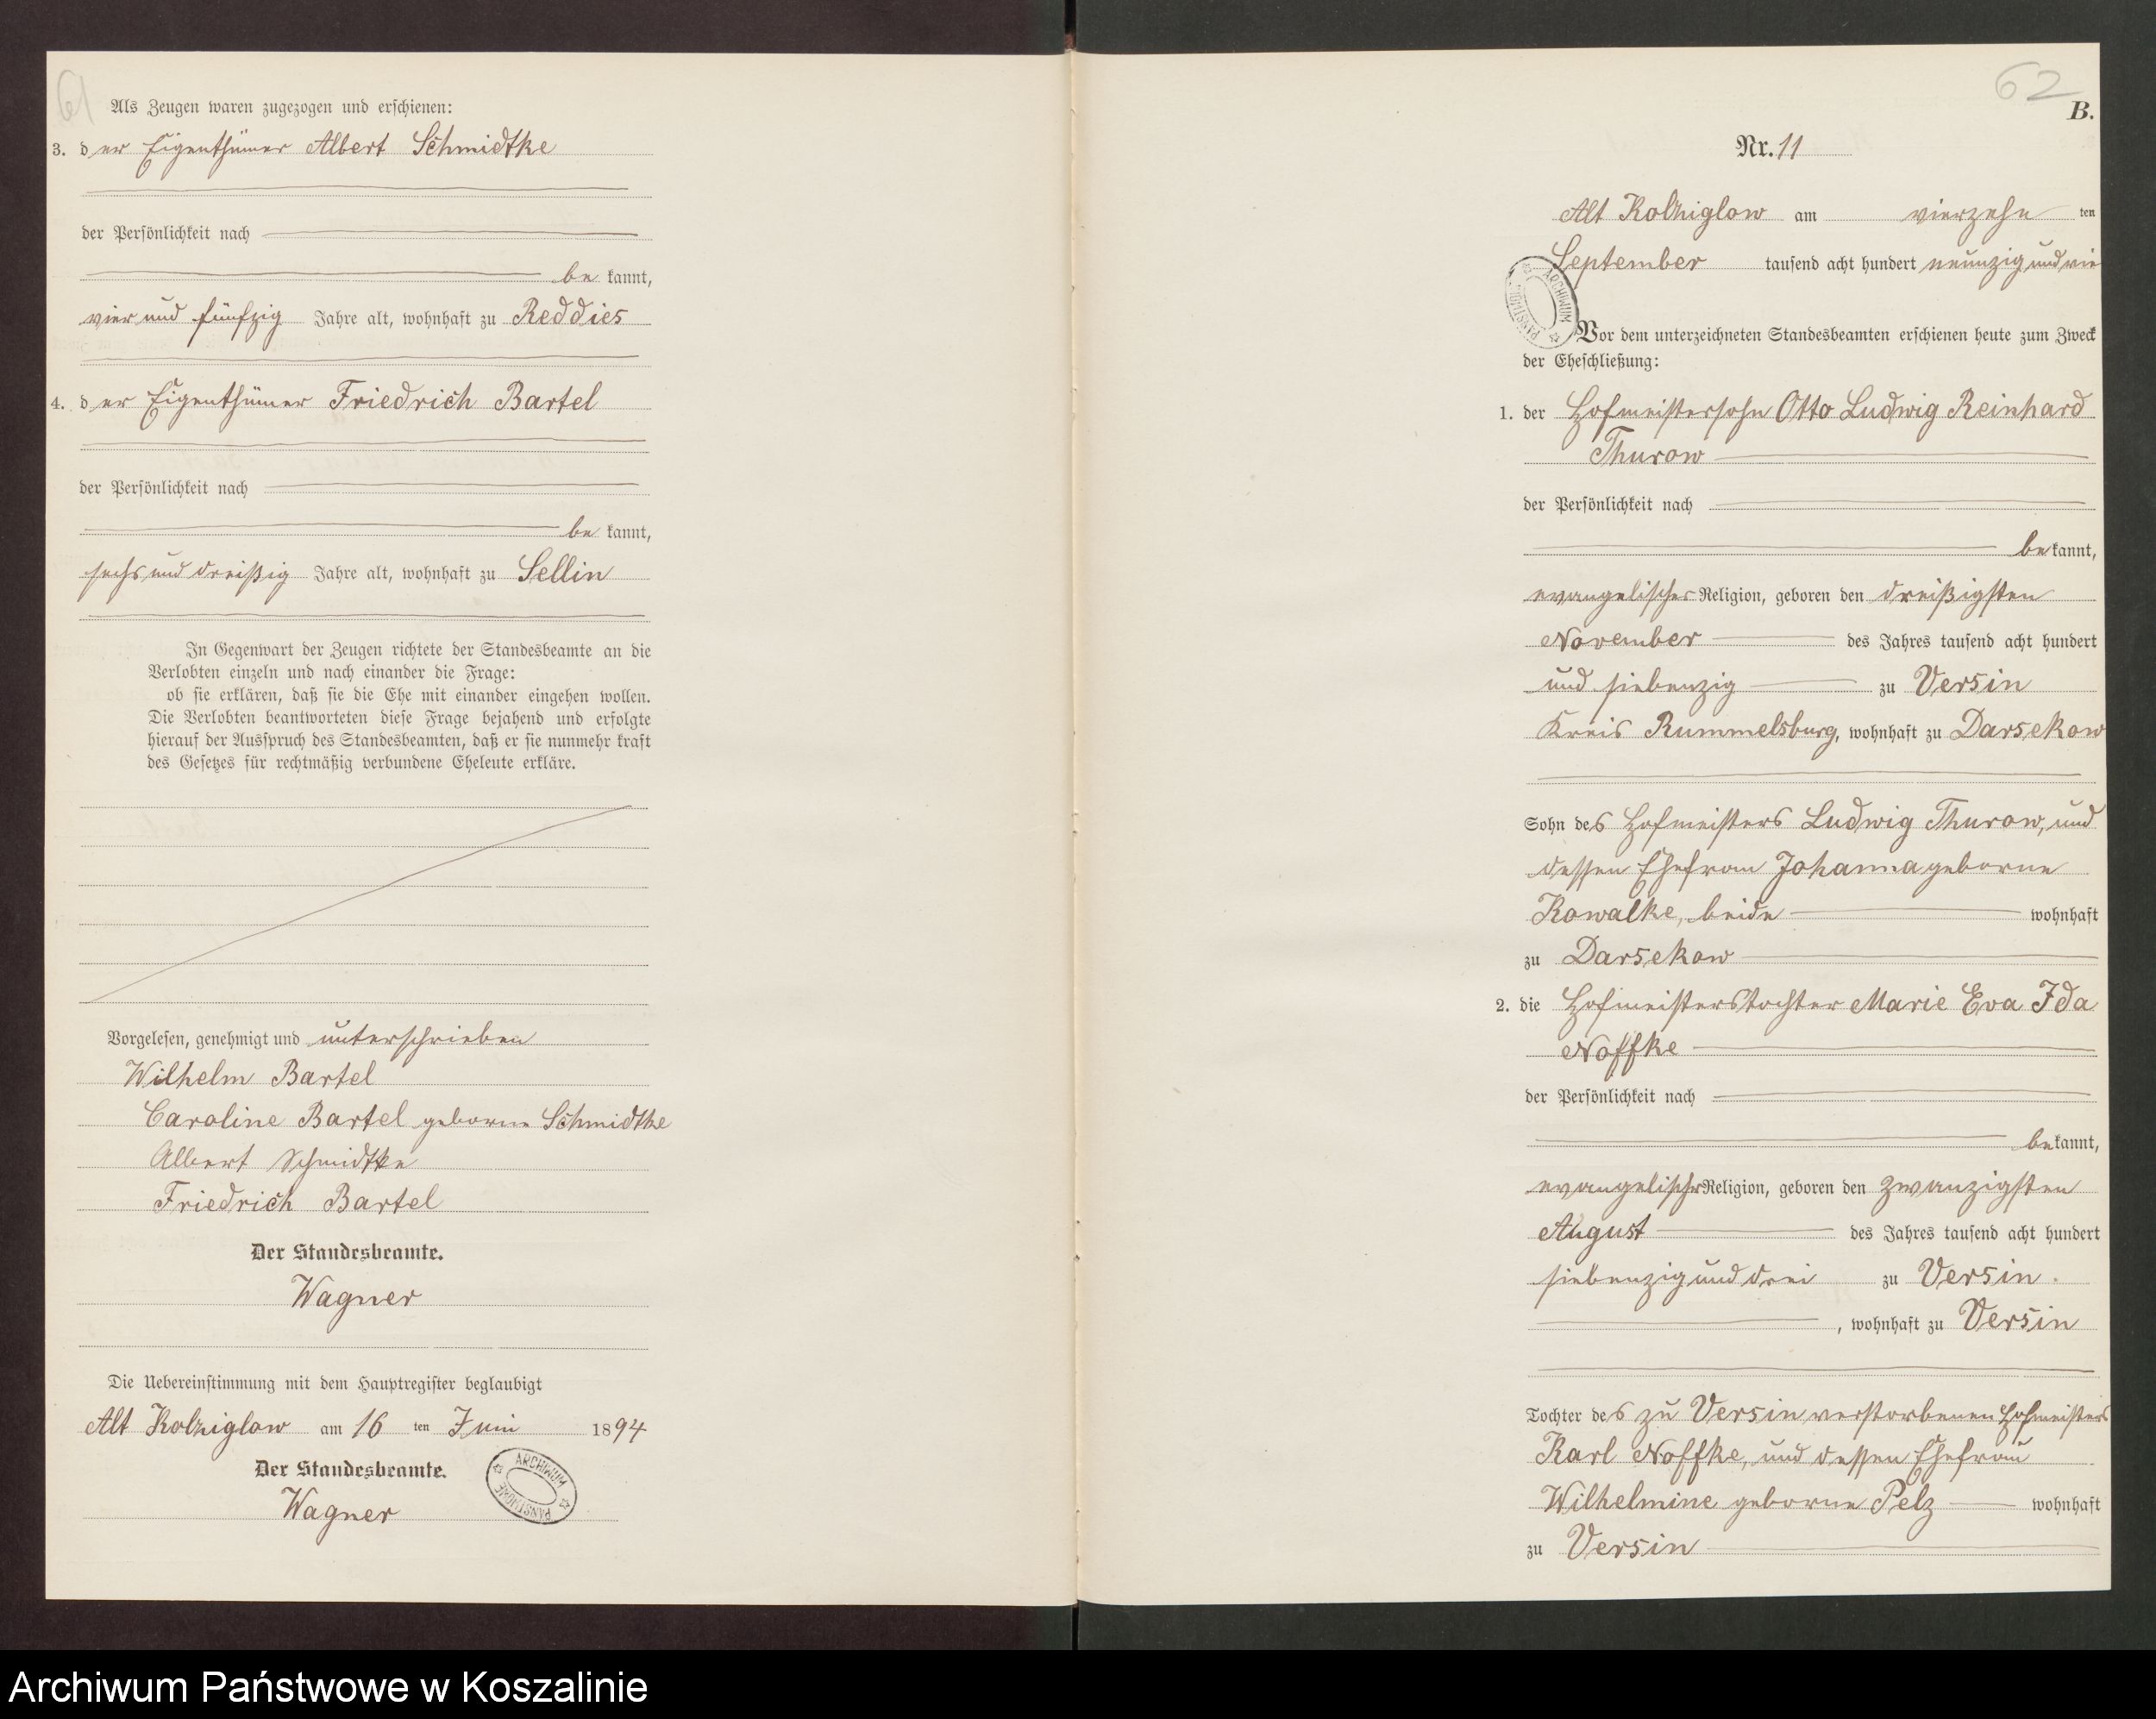 61
Als Zeugen waren zugezogen und erschienen:
3. der Eigenthümer Albert Schmidtke
der Persönlichkeit nach
be kannt,
vier und fünfzig Jahre alt, wohnhaft zu Reddies
4. der Eigenthümer Friedrich Bartel
der Persönlichkeit nach
be kannt,
sechs und dreißig Jahre alt, wohnhaft zu Sellin
In Gegenwart der Zeugen richtete der Standesbeamte an die
Verlobten einzeln und nach einander die Frage:
ob sie erklären, daß sie die Ehe mit einander eingehen wollen.
Die Verlobten beantworteten diese Frage bejahend und erfolgte
hierauf der Ausspruch des Standesbeamten, daß er sie nunmehr kraft
des Gesetzes für rechtmäßig verbundene Eheleute erkläre.
Vorgelesen, genehmigt und unterschrieben
Wilhelm Bartel
Caroline Bartel geborne Schmidtke
Albert Schmidtke
Friedrich Bartel
Der Standesbeamte.
Wagner
Die Uebereinstimmung mit dem Hauptregister beglaubigt
Alt Kolziglow am 16 ten Juni 1894
Der Standesbeamte.
Wagner
ARCHIWUM PAŃSTWOWE
62
B.
Nr. 11
Alt Kolziglow am vierzehn ten
September tausend acht hundert neunzig und vie
ARCHIWUM PAŃSTWOWE
Vor dem unterzeichneten Standesbeamten erschienen heute zum Zweck
der Eheschließung:
1. der Hofmeistersohn Otto Ludwig Reinhard
Thurow
der Persönlichkeit nach
be kannt,
evangelischer Religion, geboren den dreißigsten
November des Jahres tausend acht hundert
und siebenzig zu Versin
Kreis Rummelsburg, wohnhaft zu Darsekow
Sohn des Hofmeisters Ludwig Thurow, und
dessen Ehefrau Johanna geborne
Kowalke, beide wohnhaft
zu Darsekow
2. die Hofmeisterstochter Marie Eva Ida
Noffke
der Persönlichkeit nach
be kannt,
evangelischer Religion, geboren den zwanzigsten
August des Jahres tausend acht hundert
siebenzig und drei zu Versin.
, wohnhaft zu Versin
Tochter des zu Versin verstorbenen Hofmeisters
Karl Noffke, und dessen Ehefrau
Wilhelmine geborne Pelz wohnhaft
zu Versin
Archiwum Państwowe w Koszalinie